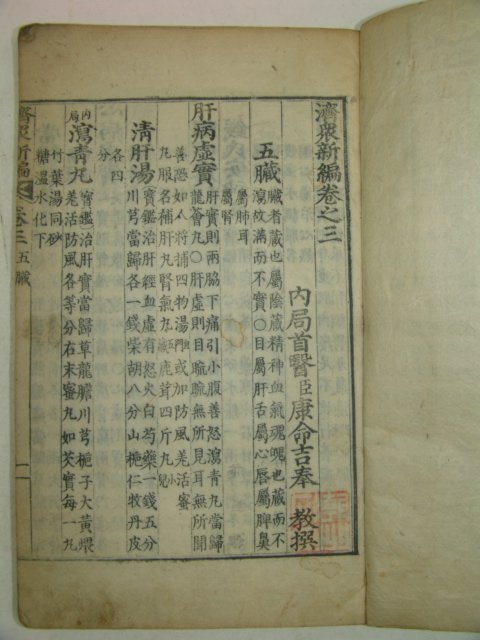 濟衆新編卷之三
內局首醫臣康命吉奉 教撰
五臟
臟者藏也屬陰藏精神血氣魂魄也藏而不
瀉故滿而不實〇目屬肝舌屬心唇屬脾鼻
屬肺耳
屬腎
肝病虛實
肝實則兩脇下痛引小腹善怒瀉靑丸當歸
龍薈丸〇肝虛則目䀮䀮無所見耳無所聞
善恐如人將捕四物湯或加防風羌活蜜
丸服名補肝丸腎氣丸鹿茸四斤丸小兒
淸肝湯
寶鑑治肝經血虛有怒火白芍藥一錢五分
川芎當歸各一錢柴胡八分山梔仁牧丹皮
各四
分
內局
瀉靑丸
寶鑑治肝實當歸草龍膽川芎梔子大黃煨
羌活防風各等分右末蜜丸如芡實每一丸
竹葉湯同砂
糖溫水化下
濟衆新編 卷三 五臟 一